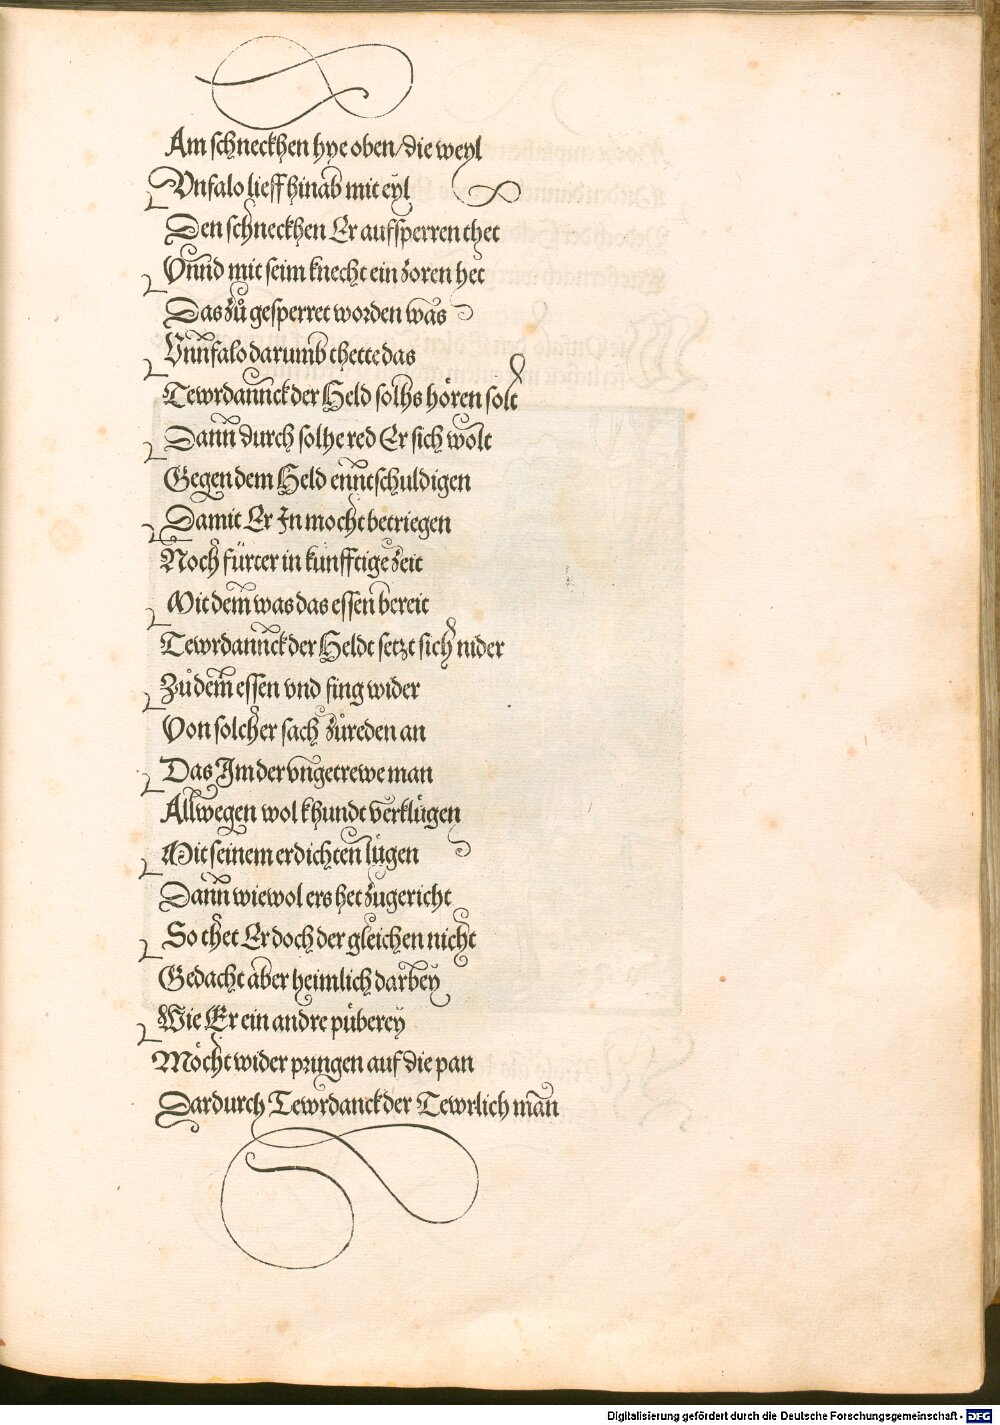 Am schneckhen hye oben/die weyl
Vnfalo lieff hinab mit eyl
Den schneckhen Er aufsperren thet
Vnnd mit seim knecht ein zoren het
Das zů gesperret worden was
Vnnfalo darumb thette das
Tewrdannck der Held solhs hören solt
Dann durch solhe red Er sich wolt
Gegen dem Held enntschuldigen
Damit Er In mocht betriegen
Noch fürter in kunfftige zeit
Mit dem was das essen bereit
Tewrdannck der Heldt setzt sich nider
Zů dem essen vnd fing wider
Von solcher sach zůreden an
Das Im der vngetrewe man
Allwegen wol khundt verklůgen
Mit seinem erdichten lůgen
Dann wiewol ers het zůgericht
So thet Er doch der gleichen nicht
Gedacht aber heimlich darbey
Wie Er ein andre půberey
Möcht wider pringen auf die pan
Dardurch Tewrdanck der Tewrlich man
Digitalisierung gefördert durch die Deutsche Forschungsgemeinschaft - DFG